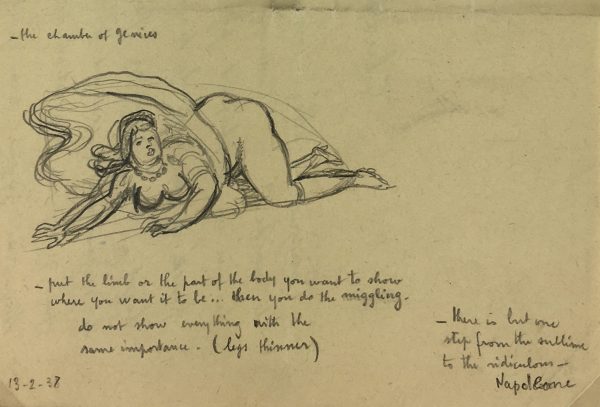 – the chamber of
– put the limb or the part of the body you want to show
where you want it to be... then you do the niggling.
do not show everything with the
same importance. (legs thinner)
– there is but one
step from the sublime
to the ridiculous –
Napoleone
13-2-38